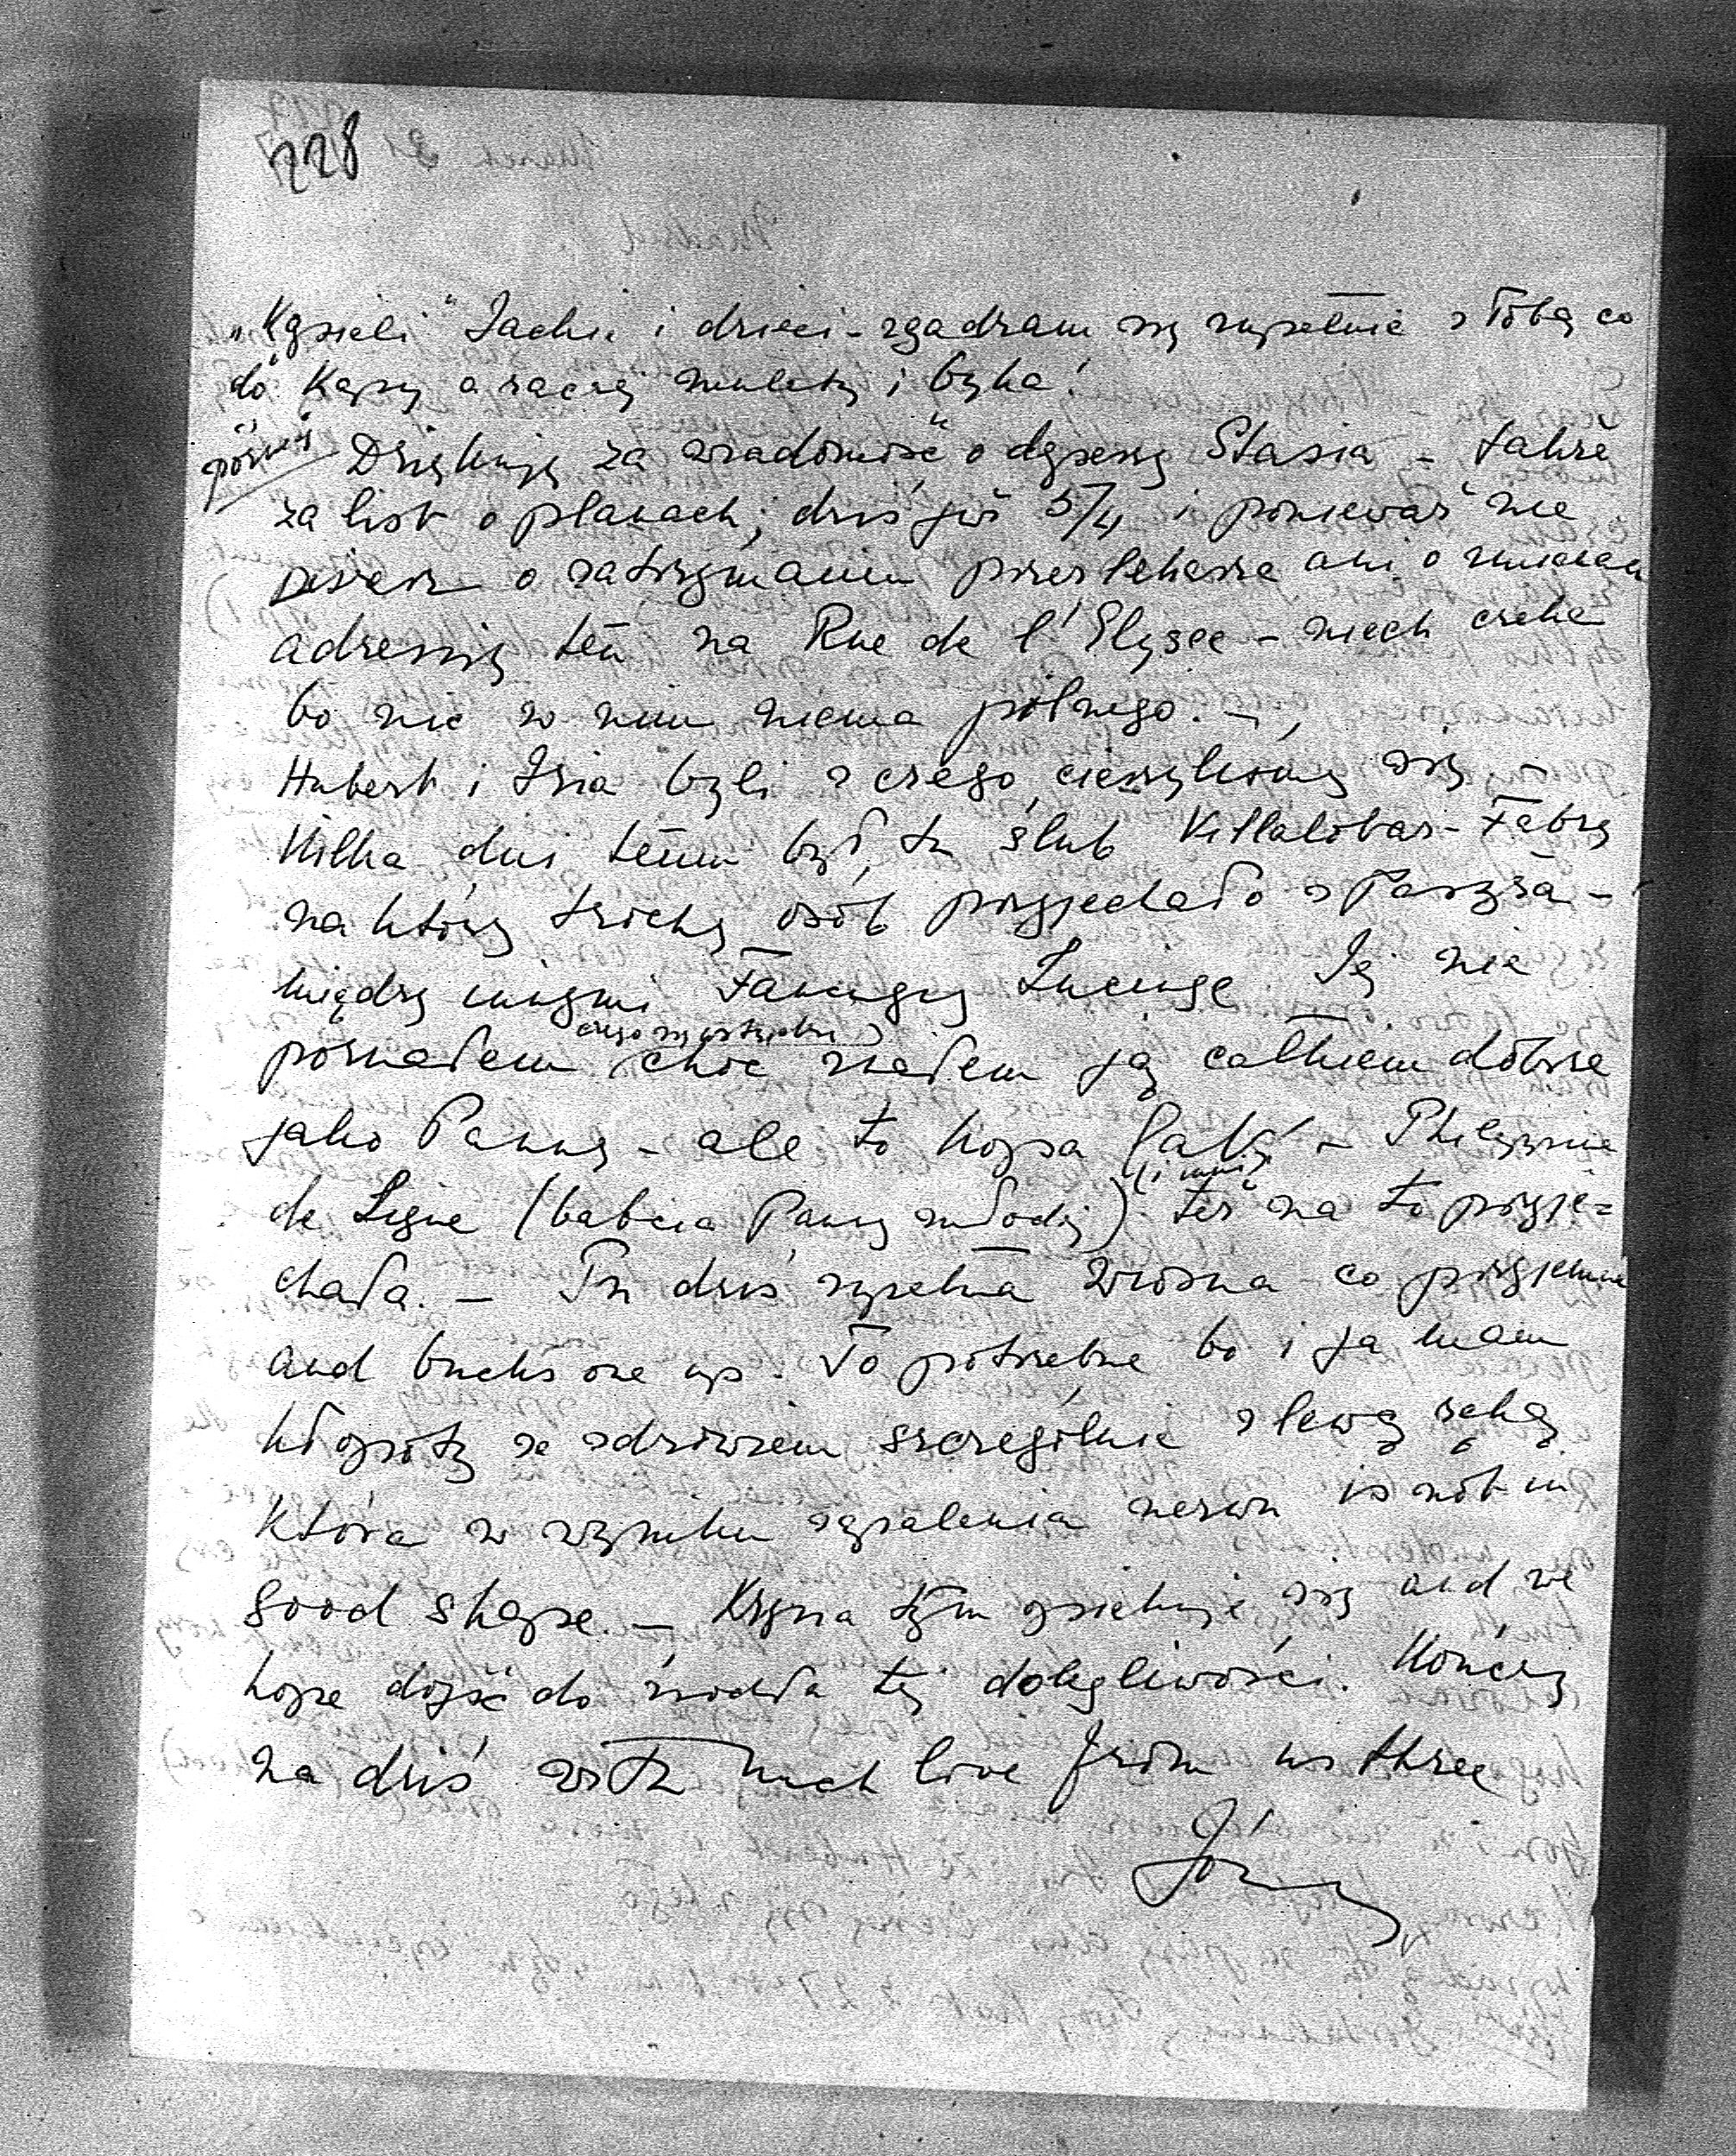 228
„Kąpieli" Jachu i dzieci - zgadzam się zupełnie z Tobą co
do Kapy a raczej mulety i byka!
później Dziękuję za wiadomość o depeszy Stasia - także
za list o planach; dziś już 5/4 i ponieważ nie
piszesz o zatrzymaniu przes ani o
adresuję ten na Rue de l'Elysee - niech czeka
bo nic w nim niema pilnego. -
Hubert i Isia byli z czego cieszyliśmy się -
Kilka dni temu był tu ślub Villalobar-Fabra
na który trochę osób przyjechało z Paryża -
między innymi Faucigny Lucinge. Jej nie
poznałem (czego się wstydzę) choć znałem ją całkiem dobrze
jako Pannę - ale to kopa lat! - Philippine
de Ligne (babcia Panny młodej) (i inni) też na to przyje=
chała. - Tu dziś zupełna wiosna co przyjemne
and bucks one up. To potrzebne bo i ja mam
kłopoty ze zdrowiem szczególnie z lewą ręką
która w wyniku zapalenia nerwu is not in
good shape. - Krysia tym opiekuje się and we
hope dojść do źródła tej dolegliwości. Kończę
na dziś with much love from us three
Józ